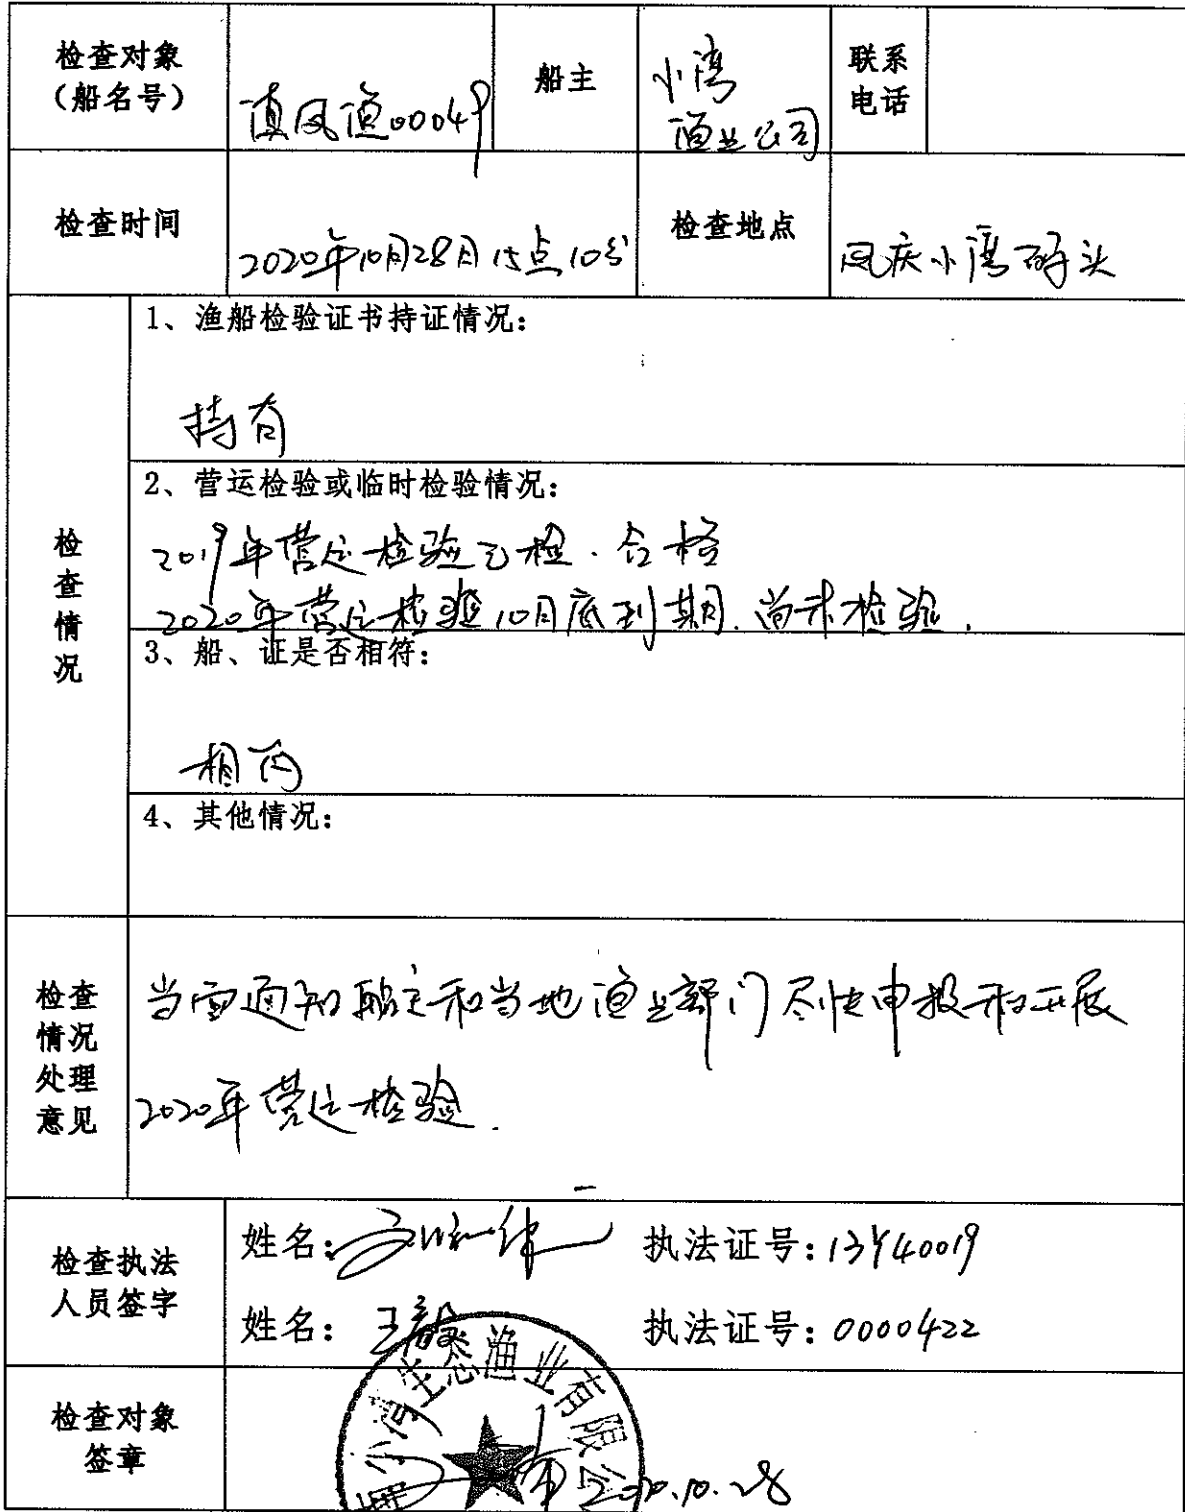 检查对象
（船名号）
滇凤渔00049
船主
小湾
渔业公司
联系
电话
检查时间
2020年10月28日15点10分
检查地点
凤庆小湾码头
检查情况
1、渔船检验证书持证情况：
持有
2、营运检验或临时检验情况：
2019年营运检验已检.合格
2020年营运检验10月底到期.尚未检验.
3、船、证是否相符：
相符
4、其他情况：
检查
情况
处理
意见
当面通知船主和当地渔业部门尽快申报和开展
2020年营运检验.
检查执法
人员签字
姓名： 执法证号：13Y40019
姓名：王毅 执法证号：0000422
检查对象
签章
小湾生态渔业有限公
2020.10.28